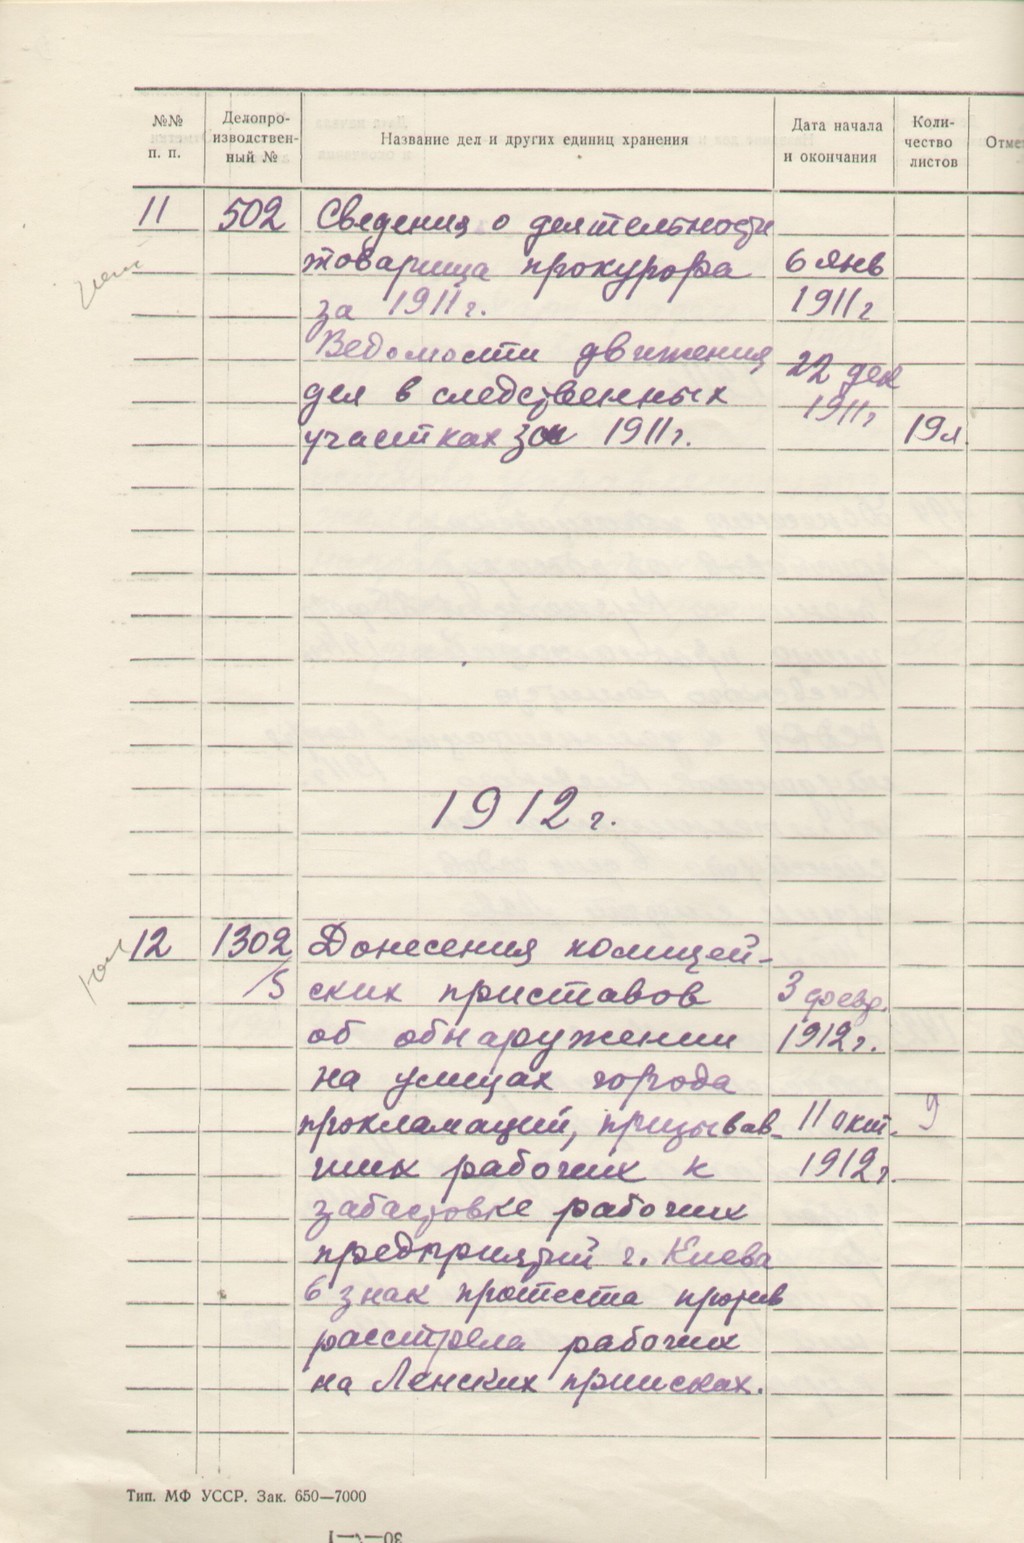 №№ п. п.
Делопро-
изводствен-
ный №
Название дел и других единиц хранения
Дата начала
и окончания
Коли-
чество
листов
Отме
11 502 Сведения о деятельности
товарища прокурора 6 янв
за 1911 г. 1911 г
Ведомости движения
22 дек
дел в следственных
1911 г
участках за 1911 г. 19 л.
1912 г.
12 1302 Донесения полицей-
/5 ских приставов 3 февр.
об обнаружении 1912 г.
на улицах города
прокламаций, призывав- 11 окт. 9
ших рабочих к 1912 г
забастовке рабочих
предприятий г. Киева
в знак протеста против
расстрела рабочих
на Ленских приисках.
Тип. МФ УССР. Зак. 650—7000